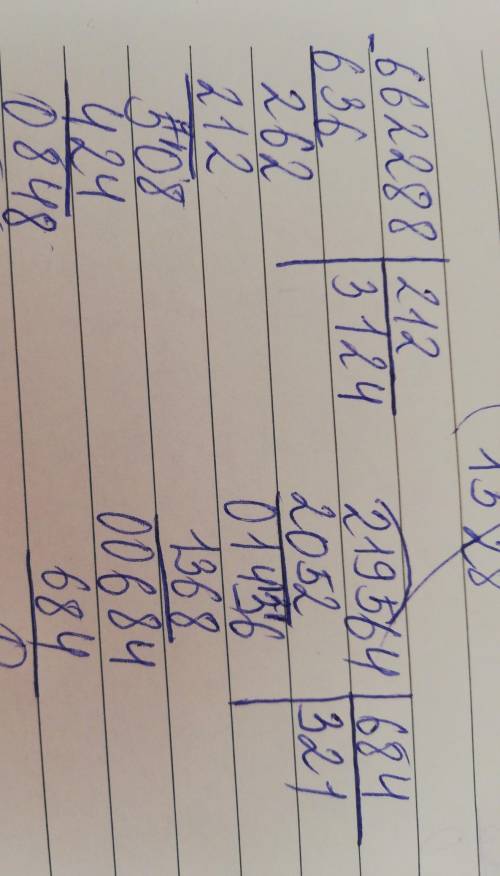 -662288 212
636 3124
262
212
508
424
0848
219564 684
2052 321
01436
1368
00684
684
0